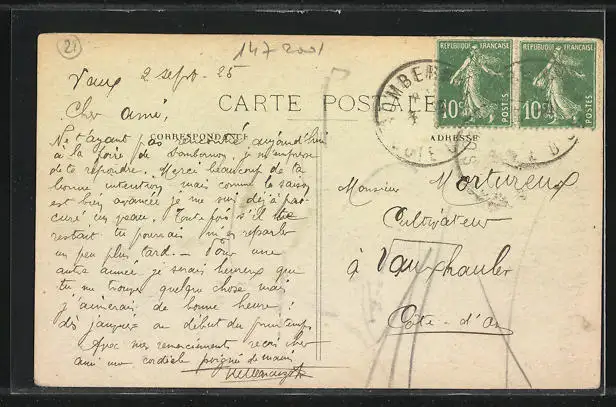 21
147 2001
Vaux 2 sept. 25
Cher ami,
CARTE POSTALE
CORRESPONDANCE
ADRESSE
REPUBLIQUE FRANÇAISE
10c
POSTES
REPUBLIQUE FRANÇAISE
10c
POSTES
SOMBERNON
CÔTE D'OR
Ne t'ayant pas rencontré aujourd'hui
à la foire de Sombernon, je m'empresse
de te répondre. Merci beaucoup de ta
bonne intention mais comme la saison
est bien avancée je me suis déjà pro-
curé un veau. Toutefois s'il te
restait tu pourrais m'en reparler
un peu plus tard. — Pour une
autre année je serais heureux que
tu me trouves quelque chose mais
j'aimerais de bonne heure :
dès janvier au début du printemps
Avec nos remerciements reçois cher
ami une cordiale poignée de mains
Monsieur Mortureux
Cultivateur
à
Côte-d'Or